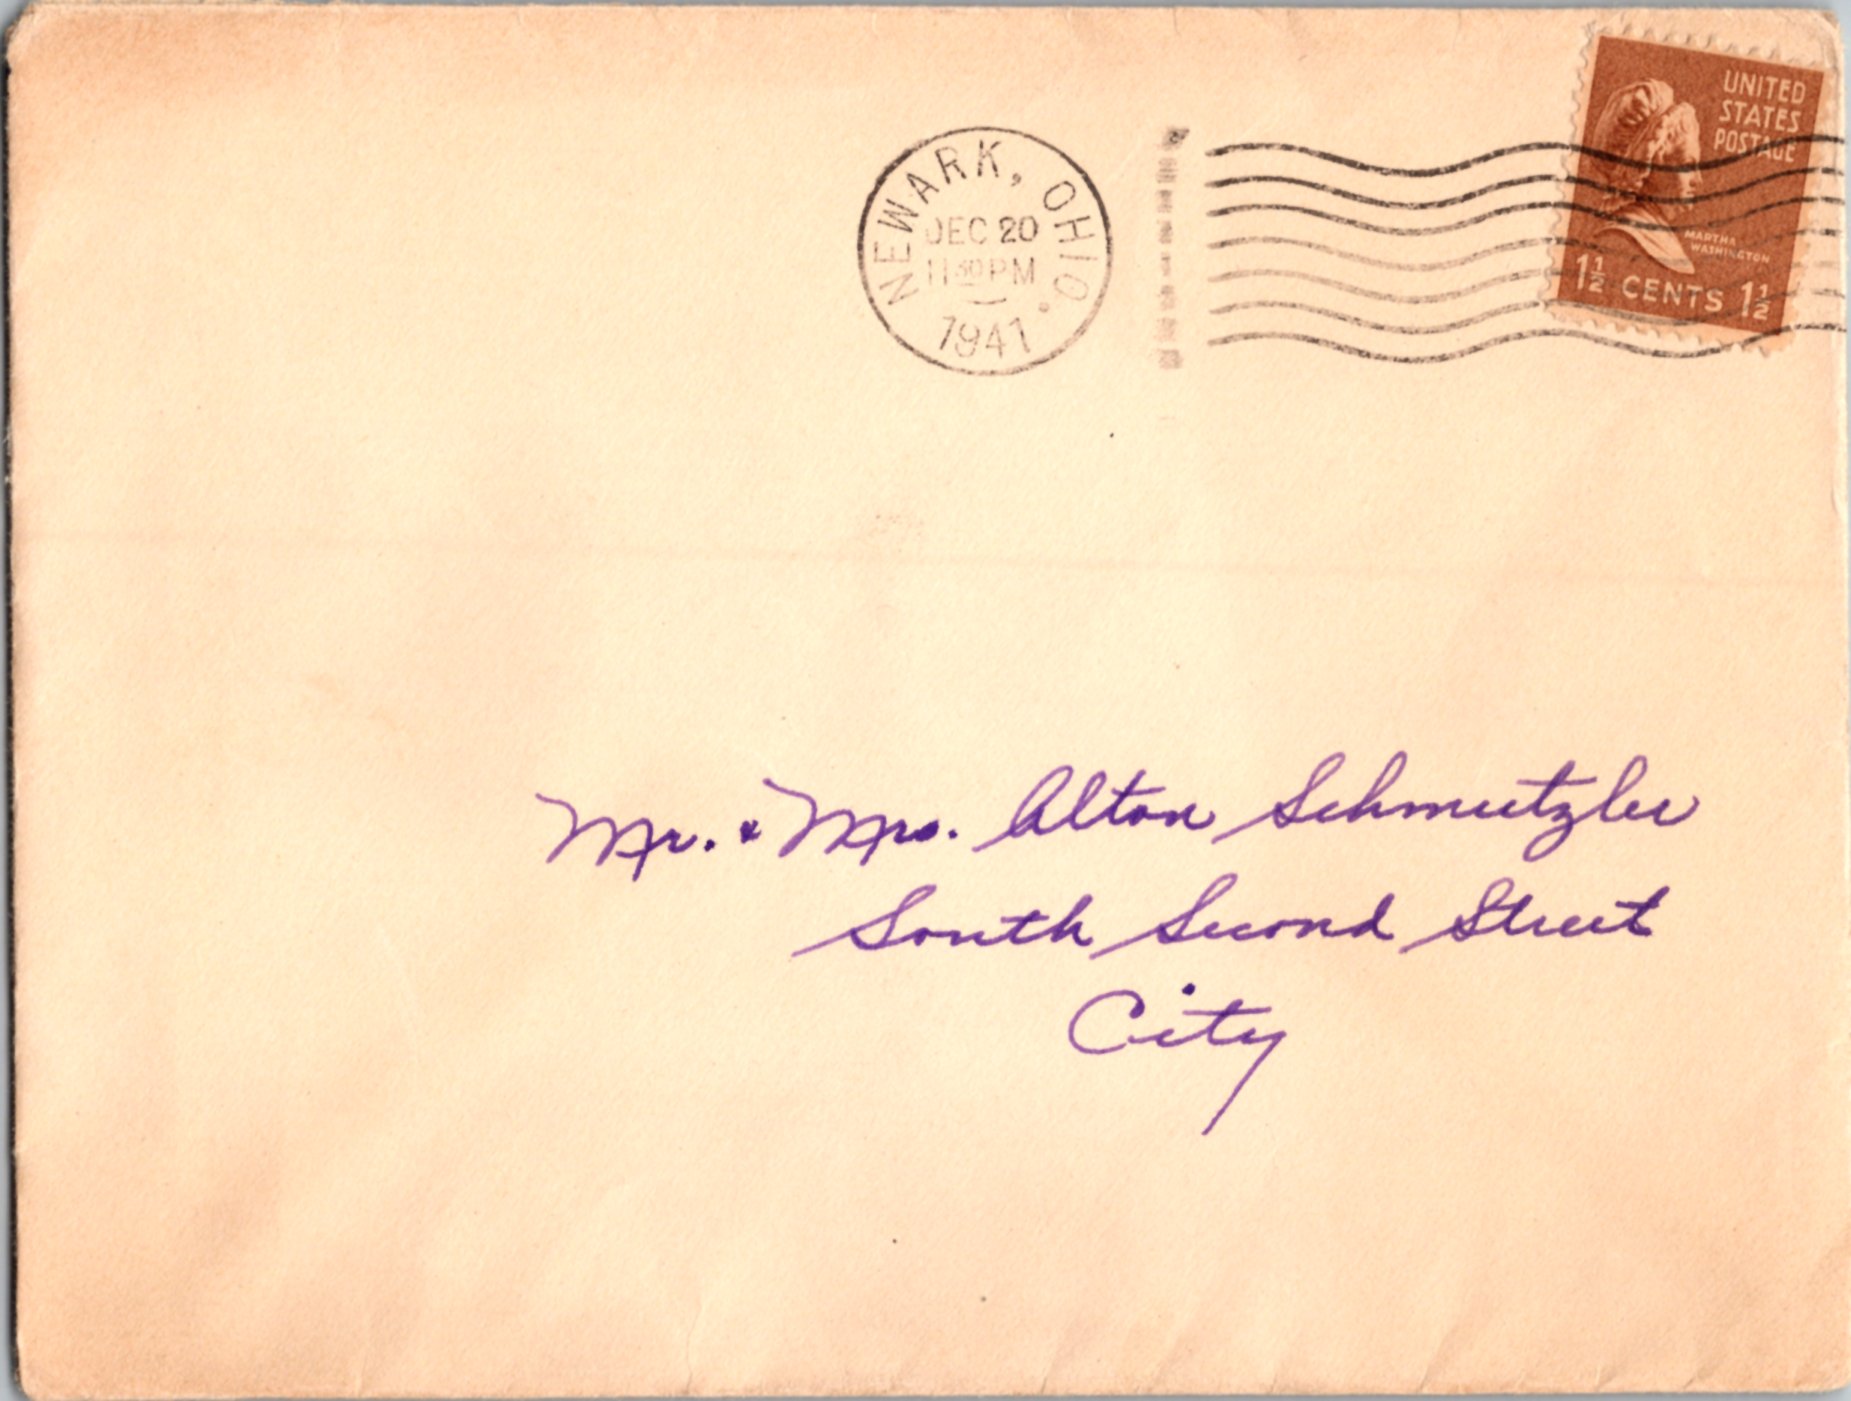 NEWARK, OHIO.
DEC 20
11 30 PM
1941
UNITED
STATES
POSTAGE
MARTHA
WASHINGTON
1 1/2 CENTS 1 1/2
Mr. & Mrs. Alton Schmeetzler
South Second Street
City